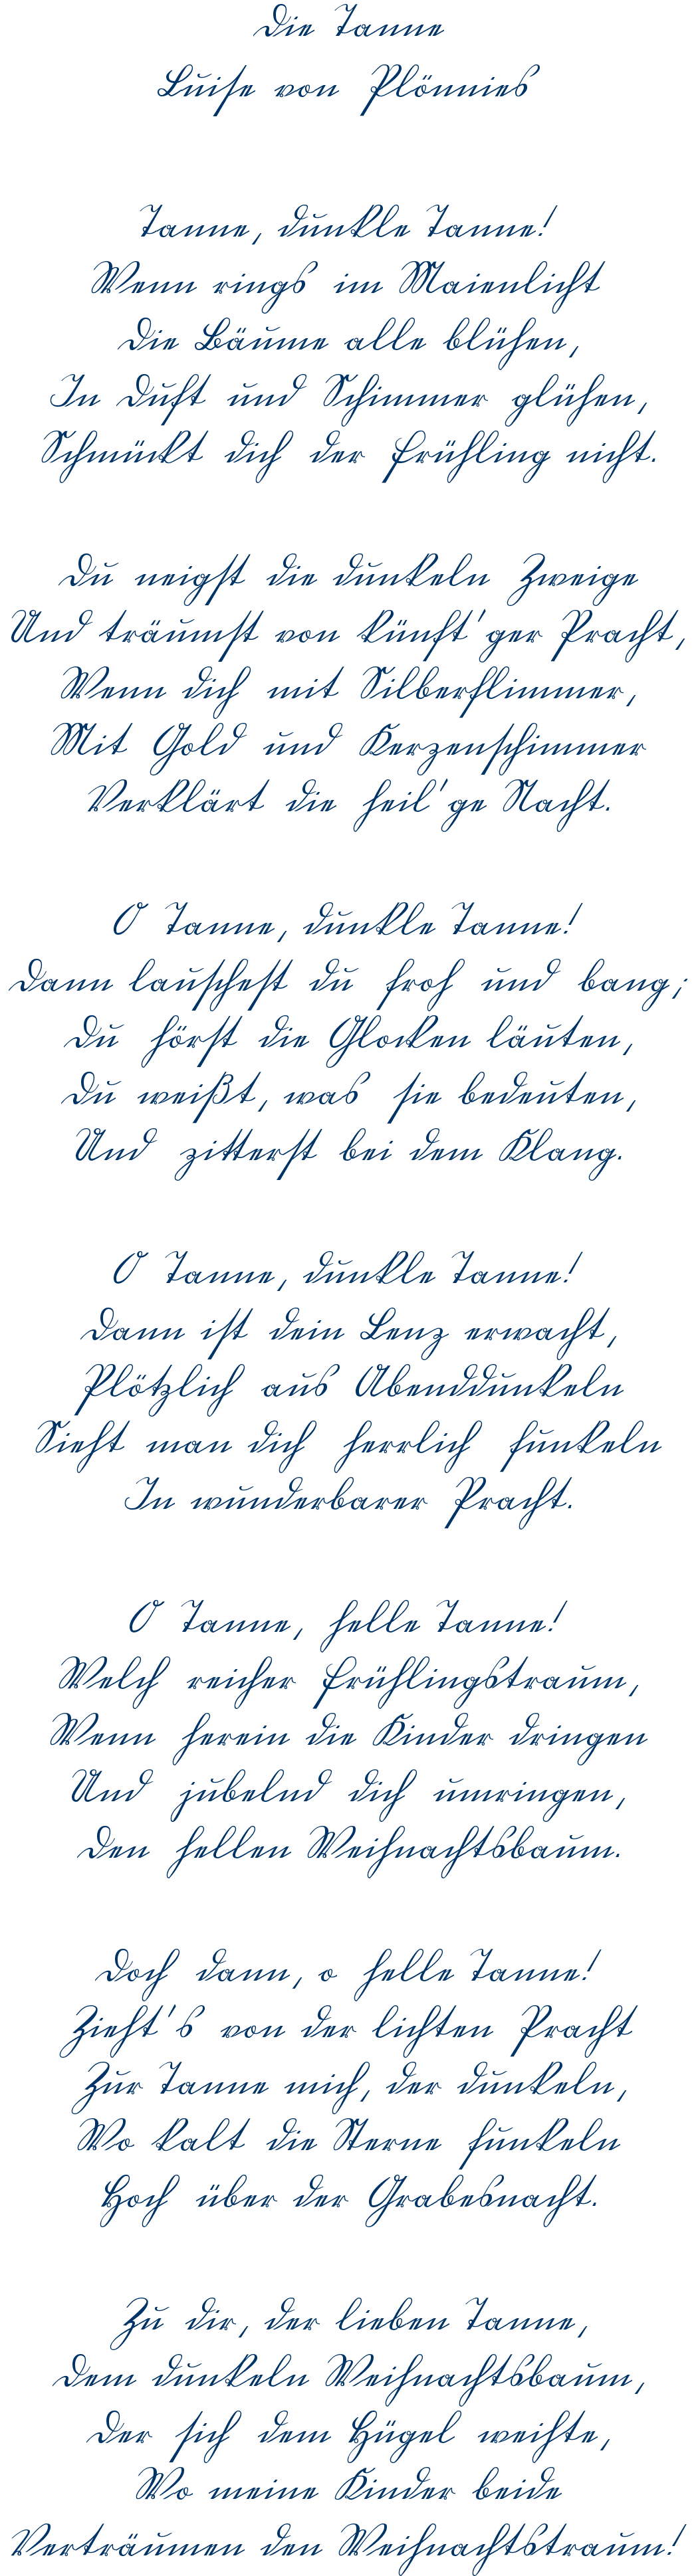 Die Tanne
Luise von Plönnies
Tanne, dunkle Tanne!
Wenn rings im Maienlicht
Die Bäume alle blühen,
In Duft und Schimmer glühen,
Schmückt dich der Frühling nicht.
Du neigst die dunkeln Zweige
Und träumst von künft'ger Pracht,
Wenn dich mit Silberflimmer,
Mit Gold und Kerzenschimmer
Verklärt die heil'ge Nacht.
O Tanne, dunkle Tanne!
Dann lauschest du froh und bang;
Du hörst die Glocken läuten,
Du weißt, was sie bedeuten,
Und zitterst bei dem Klang.
O Tanne, dunkle Tanne!
Dann ist dein Lenz erwacht,
Plötzlich aus Abenddunkeln
Sieht man dich herrlich funkeln
In wunderbarer Pracht.
O Tanne, helle Tanne!
Welch reicher Frühlingstraum,
Wenn herein die Kinder dringen
Und jubelnd dich umringen,
Den hellen Weihnachtsbaum.
Doch dann, o helle Tanne!
Zieht's von der lichten Pracht
Zur Tanne mich, der dunkeln,
Wo kalt die Sterne funkeln
Hoch über der Grabesnacht.
Zu dir, der lieben Tanne,
Dem dunkeln Weihnachtsbaum,
Der sich dem Hügel weihte,
Wo meine Kinder beide
Verträumen den Weihnachtstraum!